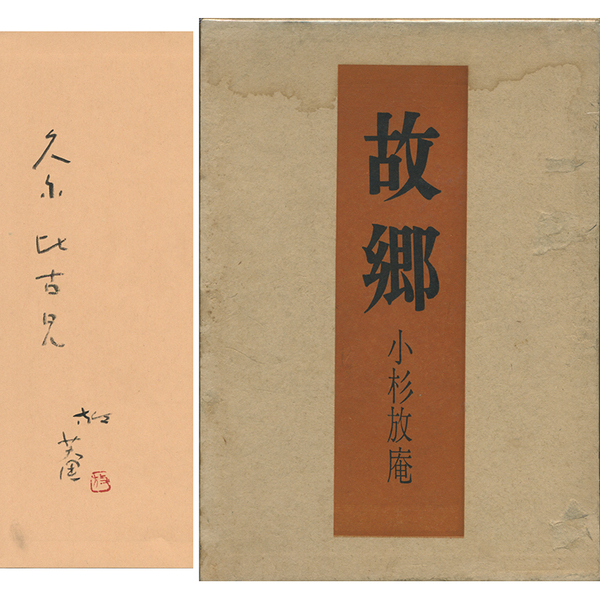 故郷
小杉放庵
久尓比古兄
放菴